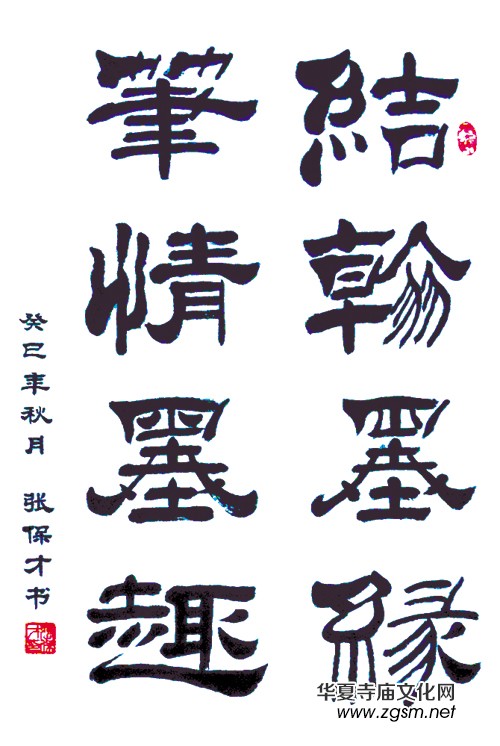 結翰墨緣
筆情墨趣
癸巳年秋月 张保才书
华夏寺庙文化网
www.zgsm.net